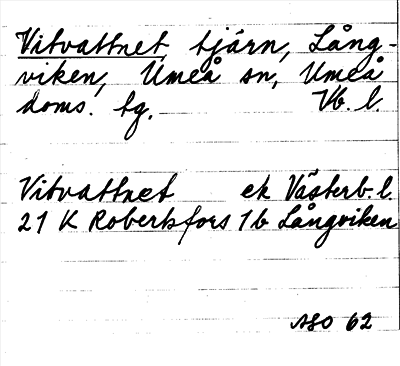 Vitvattnet, tjärn, Lång-
viken, Umeå sn, Umeå
doms. tg. Vb. l.
Vitvattnet ek Västerb. l.
21 K Robertsfors 1b Långviken
ASO 62